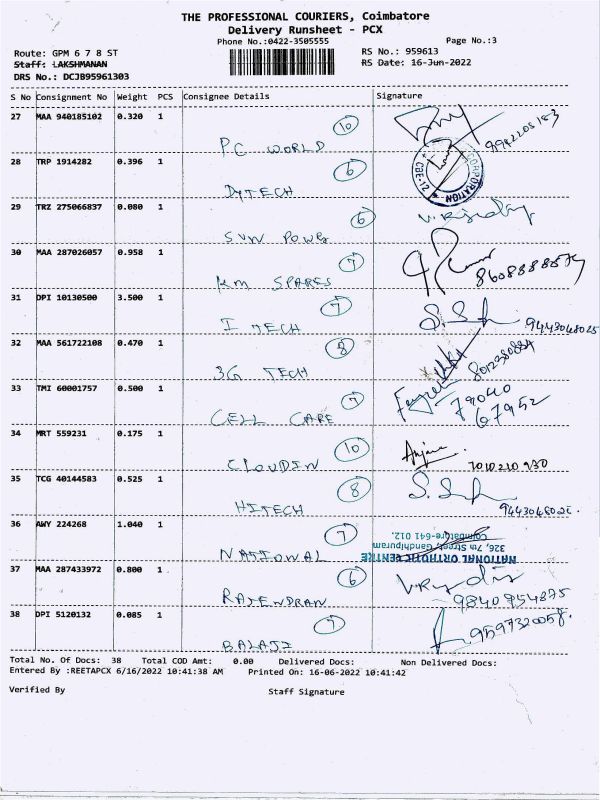 THE PROFESSIONAL COURIERS, Coimbatore
Delivery Runsheet - PCX
Phone No.:0422-3505555
Page No.:3
Route: GPM 6 7 8 ST
RS No.: 959613
Staff: LAKSHMANAN
RS Date: 16-Jun-2022
DRS No.: DCJB95961303
S No Consignment No Weight PCS Consignee Details Signature
27 MAA 940185102 0.320 1
10
PC WORLD
28 TRP 1914282 0.396 1
6
CBE-12 CORPORATION
DYTECH
29 TRZ 275066837 0.080 1
6
30 MAA 287026057 0.958 1
7
KM SPARES
31 DPI 10130500 3.500 1
7
I TECH 9443048025
32 MAA 561722108 0.470 1
8
3G TECH
33 TMI 60001757 0.500 1
7
79040
67952
CELL CARE
34 MRT 559231 0.175 1
10
CLOUDIN
35 TCG 40144583 0.525 1
8
HITECH
36 AWY 224268 1.040 1
7
NATIONAL ORTHOTIC CENTRE
326, 7th Street, Gandhipuram
Coimbatore-641 012.
NATIONAL
37 MAA 287433972 0.800 1
6
RAJENDRAN
38 DPI 5120132 0.085 1
7
BALAJI
Total No. Of Docs: 38 Total COD Amt: 0.00 Delivered Docs: Non Delivered Docs:
Entered By :REETAPCX 6/16/2022 10:41:38 AM Printed On: 16-06-2022 10:41:42
Verified By Staff Signature